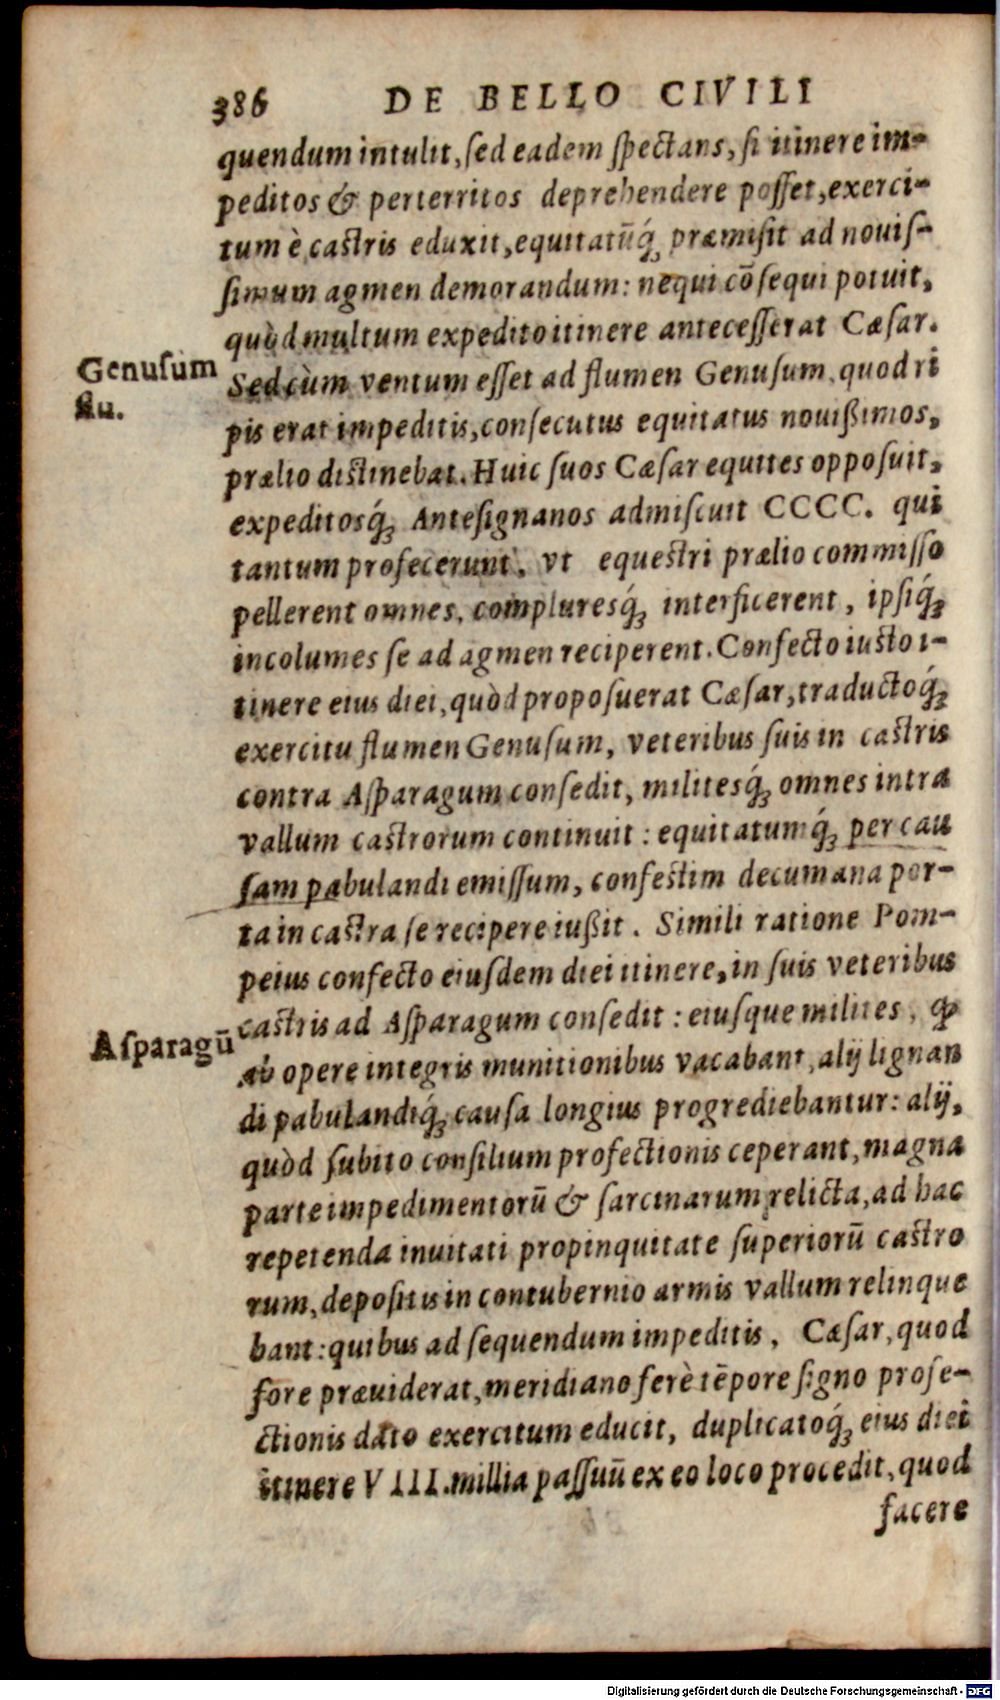 386 DE BELLO CIVILI
quendum intulit, ſed eadem ſpectans, ſi itinere im-
peditos & perterritos deprehendere poſſet, exerci-
tum è caſtris eduxit, equitatūq́; præmiſit ad nouiſ-
ſimum agmen demorandum: nequi cōſequi potuit,
quòd multum expedito itinere anteceſſerat Cæſar.
Genuſum
flu.
Sed cùm ventum eſſet ad flumen Genuſum, quod ri
pis erat impeditis, conſecutus equitatus nouißimos,
prælio diſtinebat. Huic ſuos Cæſar equites oppoſuit,
expeditosq́; Anteſignanos admiſcuit CCCC. qui
tantum profecerunt, vt equeſtri prælio commiſſo
pellerent omnes, compluresq́; interficerent, ipſiq́;
incolumes ſe ad agmen reciperent. Confecto iuſto i-
tinere eius diei, quòd propoſuerat Cæſar, traductoq́;
exercitu flumen Genuſum, veteribus ſuis in caſtris
contra Aſparagum conſedit, militesq́; omnes intra
vallum caſtrorum continuit: equitatumq́; per cau
ſam pabulandi emiſſum, confeſtim decumana por-
ta in caſtra ſe recipere iußit. Simili ratione Pom-
peius confecto eiuſdem diei itinere, in ſuis veteribus
Aſparagū
caſtris ad Aſparagum conſedit: eiuſque milites, ꝙ
ab opere integris munitionibus vacabant, alij lignan
di pabulandiq́; cauſa longius progrediebantur: alij,
quòd ſubito conſilium profectionis ceperant, magna
parte impedimentorū & ſarcinarum relicta, ad hac
repetenda inuitati propinquitate ſuperiorū caſtro
rum, depoſitis in contubernio armis vallum relinque
bant: quibus ad ſequendum impeditis, Cæſar, quod
fore præuiderat, meridiano ferè tēpore ſigno profe-
ctionis dato exercitum educit, duplicatoq́; eius diei
itinere VIII. millia paſſuū ex eo loco procedit, quod
facere
Digitalisierung gefördert durch die Deutsche Forschungsgemeinschaft - DFG